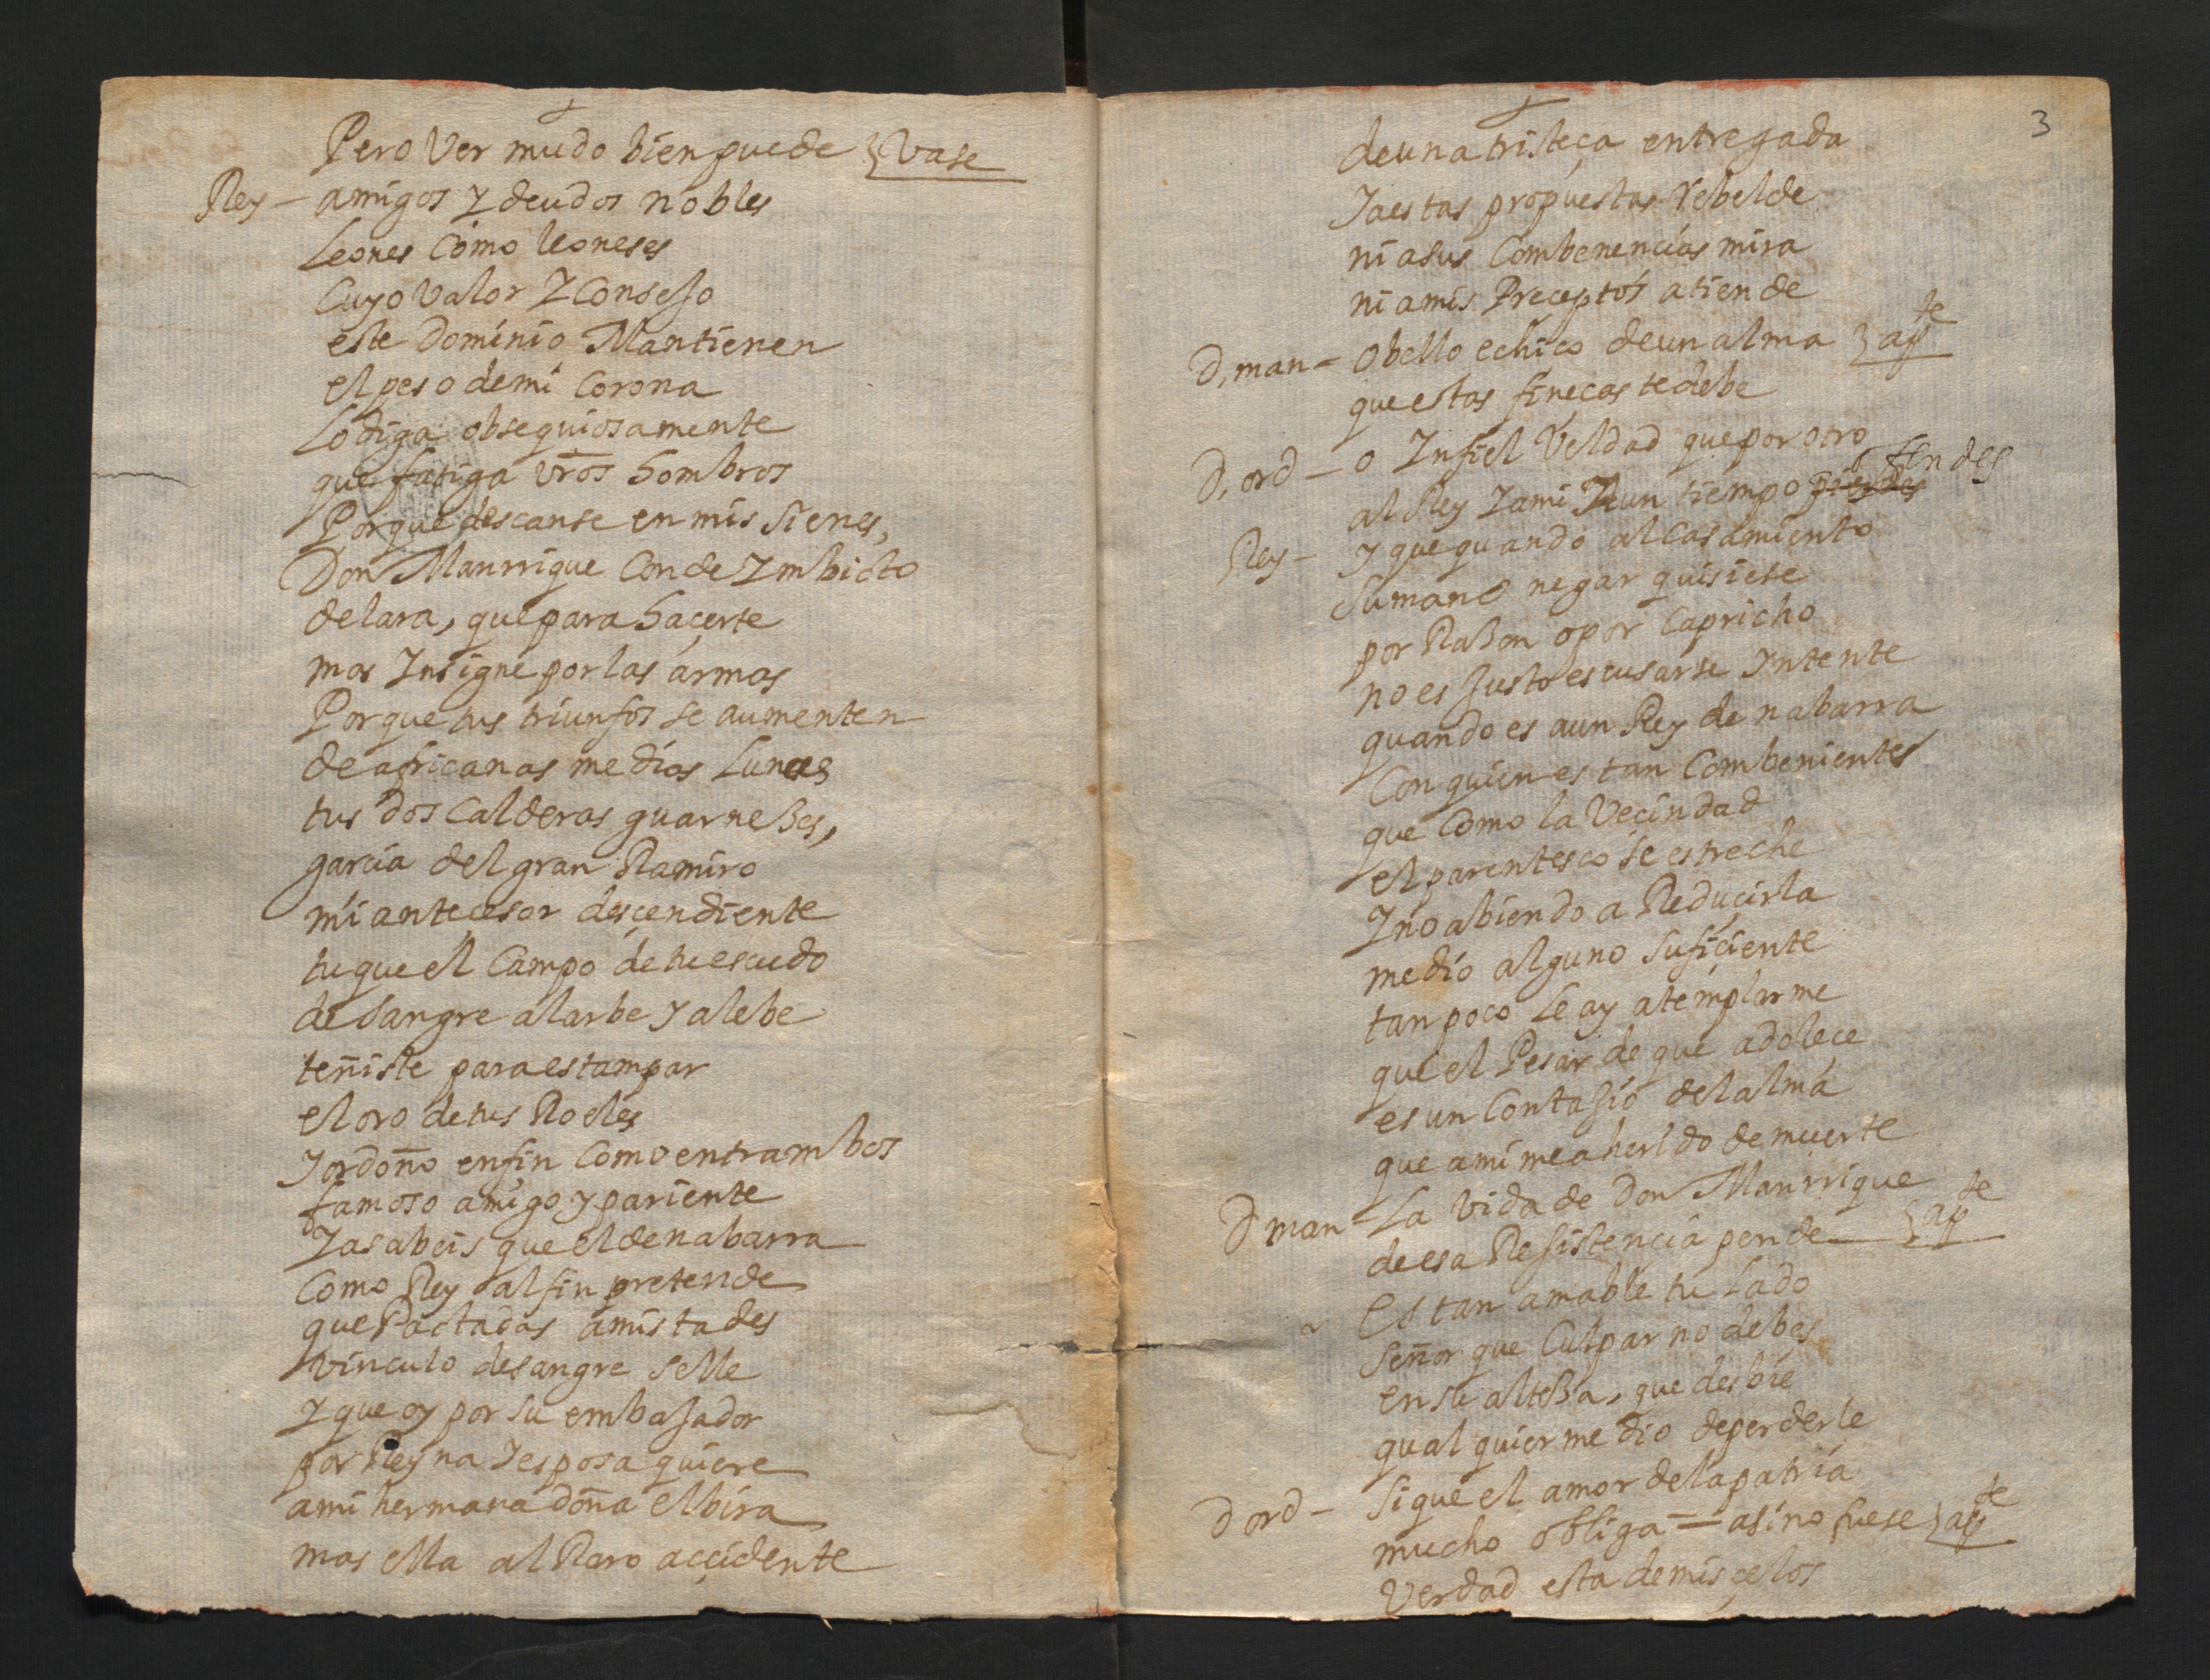 Pero Ver mudo bien puede }Vase
Rey - amigos y deudos nobles
Leones Como leoneses
Cuyo Valor y Consejo
este Dominio Mantienen
el peso de mi Corona
Lo diga obsequiosamente
que fatiga vros hombros
Porque descanse en mis Sienes,
Don Manrrique Conde Ymbicto
de lara, que para haçerte
mas Ynsigne por las armas
Porque tus triunfos se aumenten
de africanas medias Lunas
tus dos Calderas guarneses,
garcia del gran Ramiro
mi antecesor desçendiente
tu que el Campo de tu escudo
de Sangre alarbe y alebe
teñiste para estampar
el oro de tus Roeles
Y ordoño enfin Como entrambos
famoso amigo y pariente
Ya sabeis que el de nabarra
Como Rey al fin pretende
que Pactadas amistades
vinculo de sangre selle
Y que oy por su embajador
por Reyna Y esposa quiere
a mi hermana doña elbira
mas ella al Raro acçidente
3
de una tristeça entregada
Y a estas propuestas Rebelde
ni a sus Combenencias mira
ni a mis Preceptos atiende
D, man = O bello echiço de un alma } apte
que estas fineças te debe
D, ord - o Ynfiel Veldad que por otro
al Rey Y a mi Y a un tiempo pierdes ofendes
Rey - y que quando al Casamiento
Su mano negar quisiese
por Rason o por Capricho
no es Justo escusarse Yntente
quando es a un Rey de nabarra
Con quien es tan Combeniente
que Como la Vecindad
el parentesco se estreche
Y no abiendo a Reduçirla
medio alguno Sufiçiente
tan poco le ay a templarme
que el Pesar de que adolece
es un Contajio del alma
que a mi me a herido de muerte
D man = La vida de Don Manrrique
de esa Resistencia pende } apte
Es tan amable tu Lado
Señor que Culpar no debes
en su altesa, que desbie
qual quier medio de perderle
D ord - Si que el amor de la patria
mucho obliga = asi no fuese } apte
Verdad esta de mis çelos